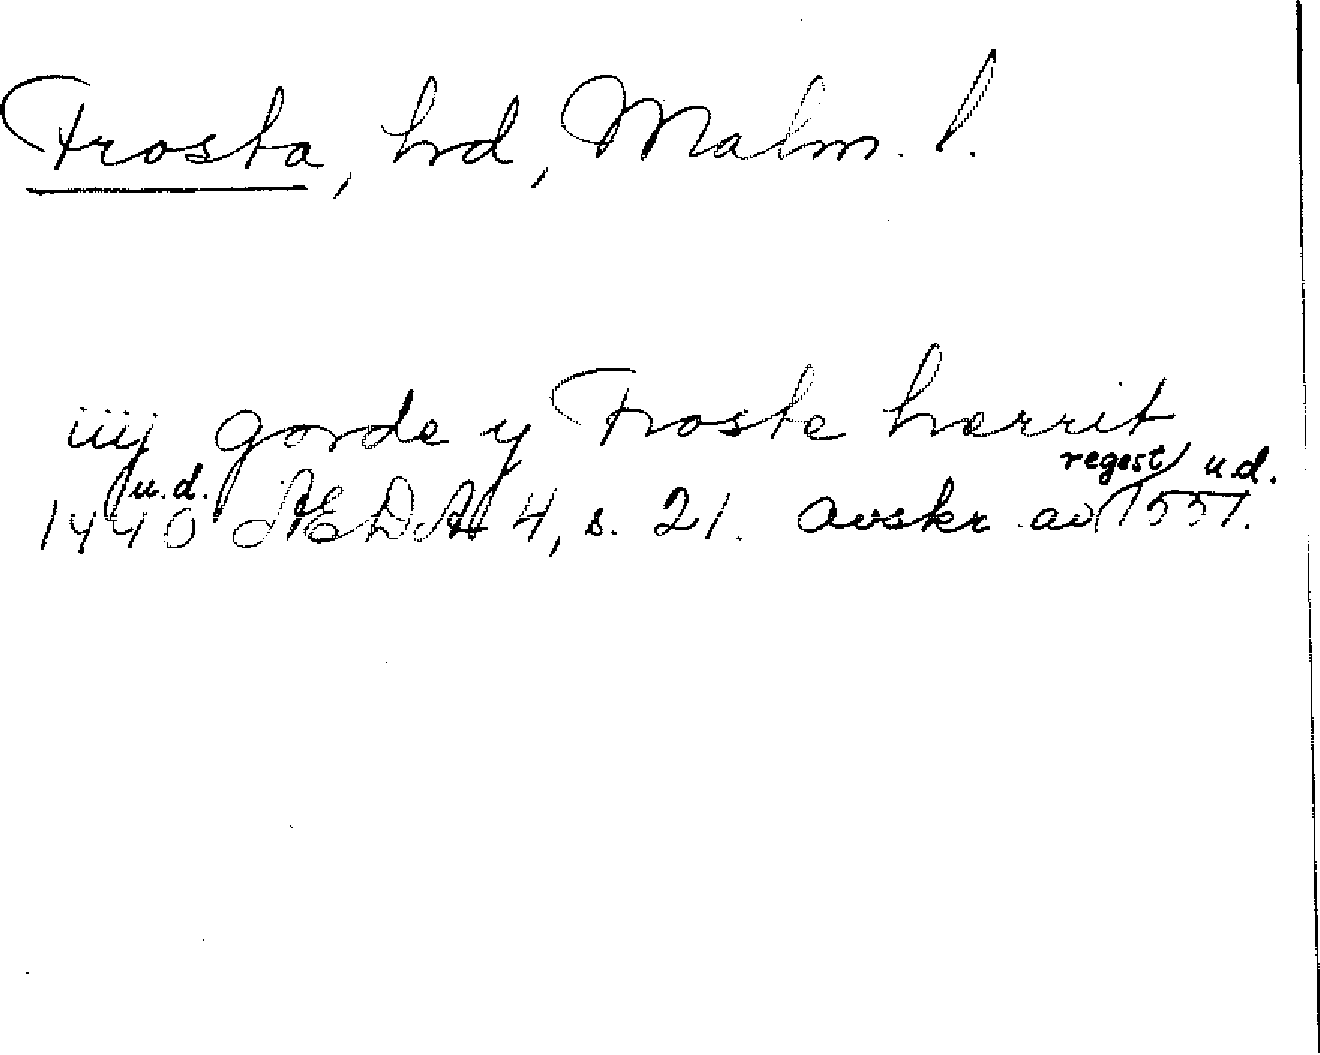 Frosta, hrd, Malm. l.
iiij gorde y Froste herrit
1440 u.d. ÆDA 4, s. 21. avskr av regest 1551. u.d.